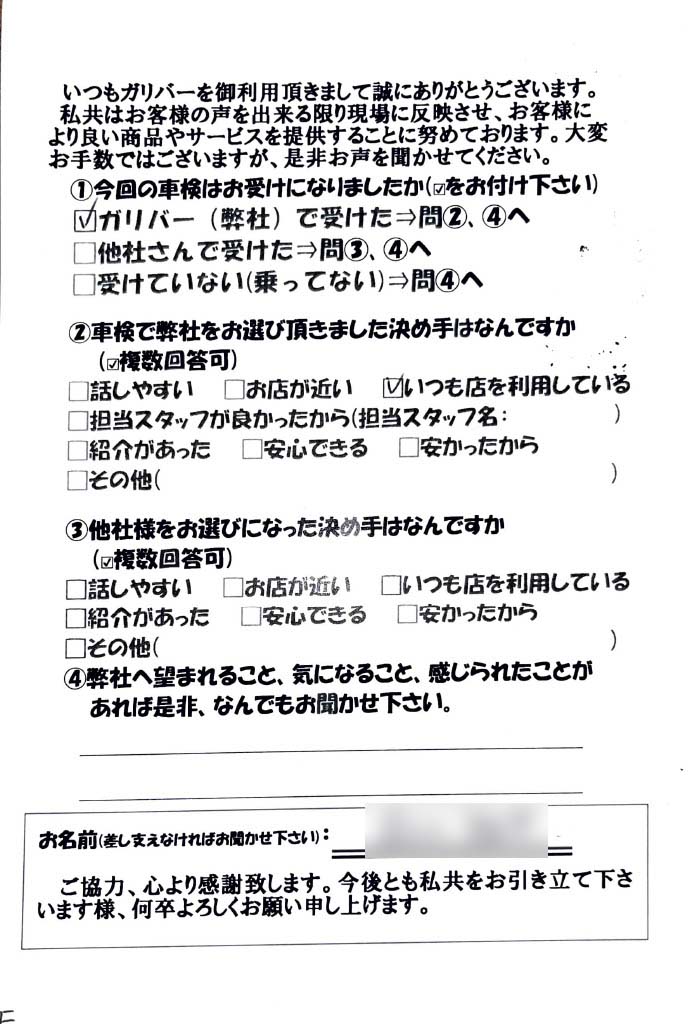 いつもガリバーを御利用頂きまして誠にありがとうございます。
私共はお客様の声を出来る限り現場に反映させ、お客様に
より良い商品やサービスを提供することに努めております。大変
お手数ではございますが、是非お声を聞かせてください。
①今回の車検はお受けになりましたか(☑をお付け下さい)
☑ガリバー（弊社）で受けた⇒問②、④へ
□他社さんで受けた⇒問③、④へ
□受けていない(乗ってない)⇒問④へ
②車検で弊社をお選び頂きました決め手はなんですか
(☑複数回答可)
□話しやすい □お店が近い ☑いつも店を利用している
□担当スタッフが良かったから(担当スタッフ名: )
□紹介があった □安心できる □安かったから
□その他( )
③他社様をお選びになった決め手はなんですか
(☑複数回答可)
□話しやすい □お店が近い □いつも店を利用している
□紹介があった □安心できる □安かったから
□その他( )
④弊社へ望まれること、気になること、感じられたことが
あれば是非、なんでもお聞かせ下さい。
お名前(差し支えなければお聞かせ下さい):
ご協力、心より感謝致します。今後とも私共をお引き立て下さ
います様、何卒よろしくお願い申し上げます。